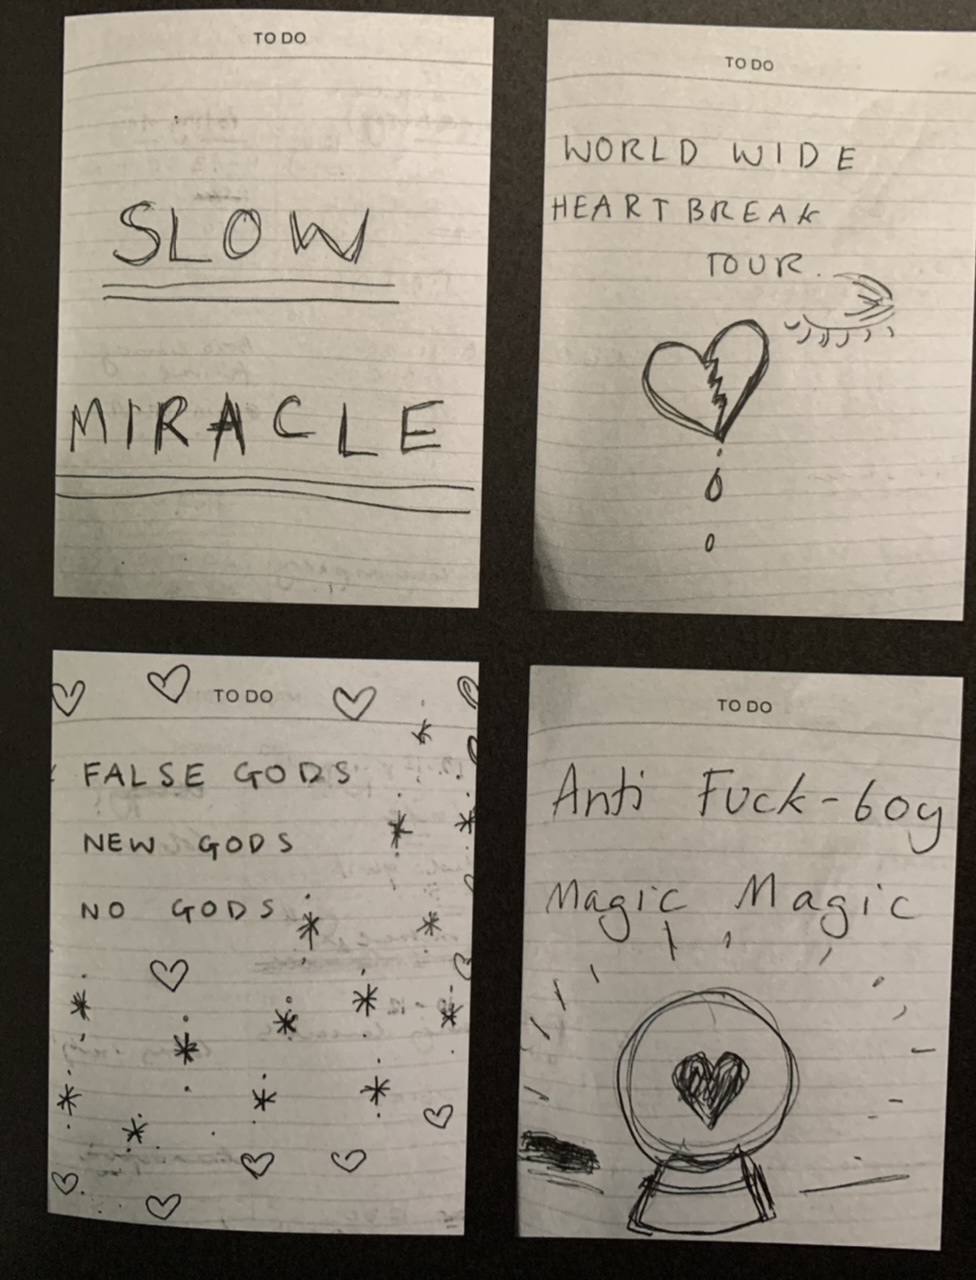 TO DO
SLOW
MIRACLE
TO DO
WORLD WIDE
HEARTBREAK
TOUR.
TO DO
FALSE GODS
NEW GODS
NO GODS
TO DO
Anti Fuck-boy
Magic Magic